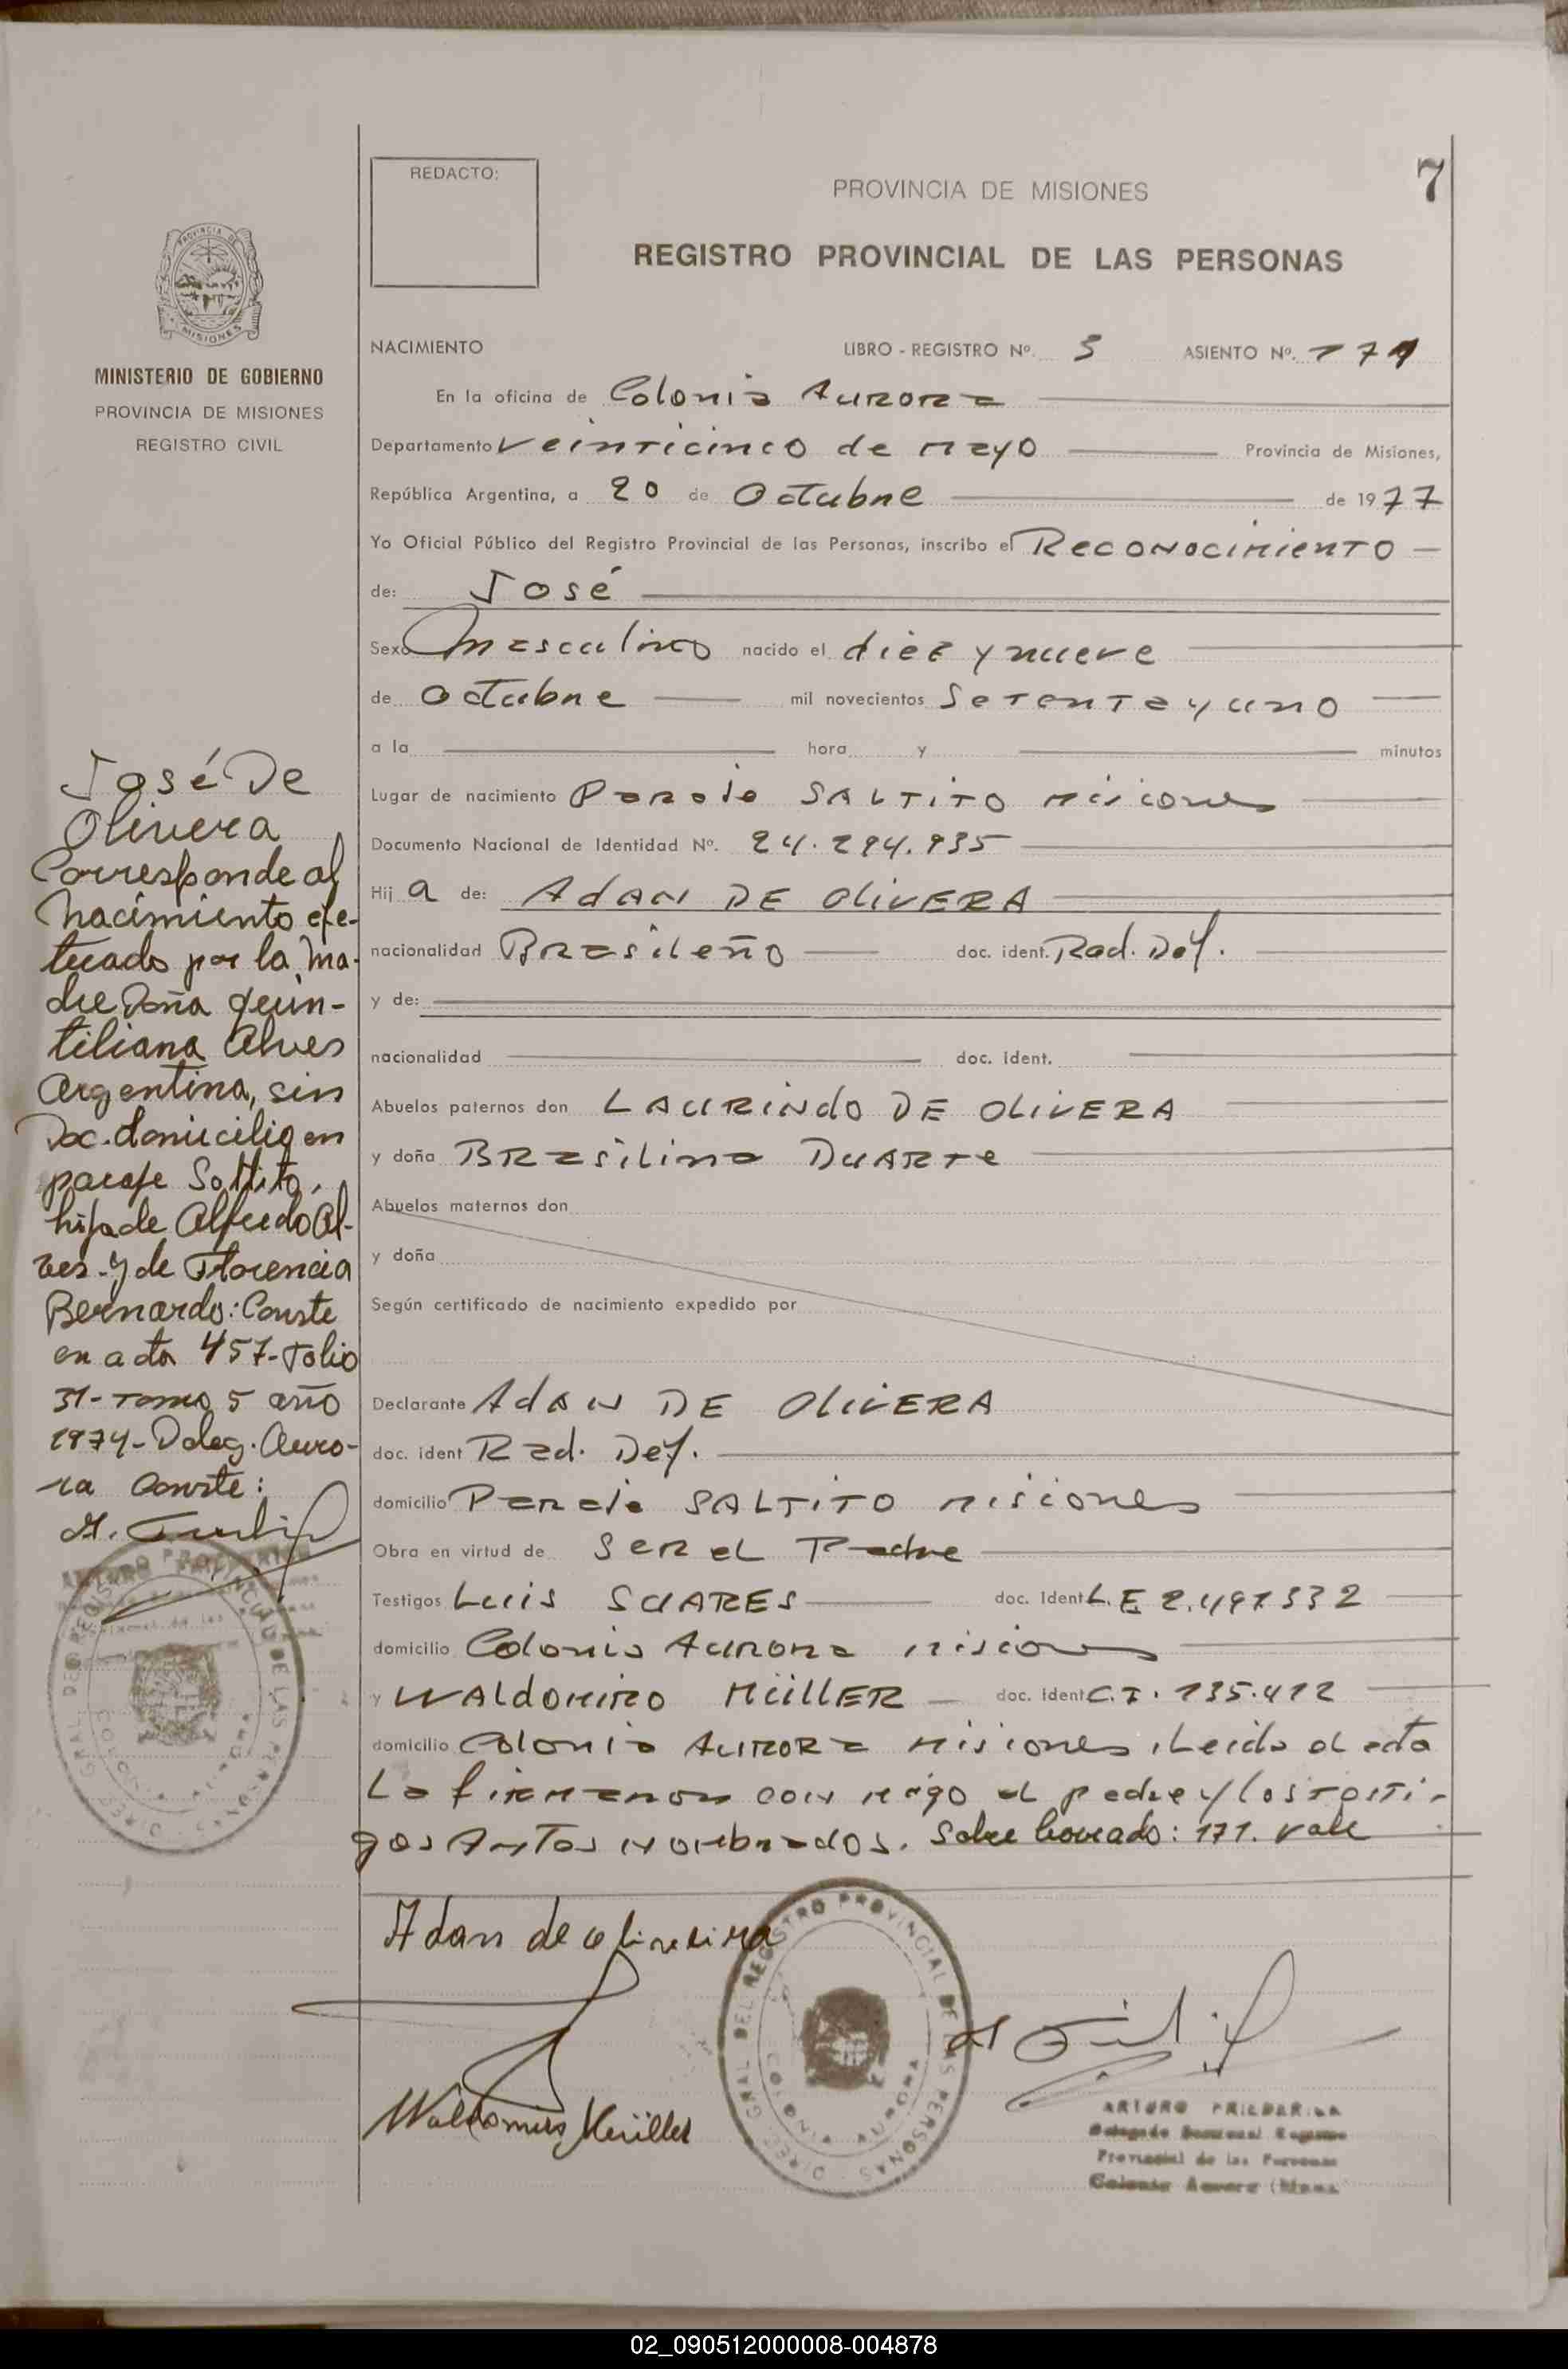 7
REDACTO:
PROVINCIA DE MISIONES
REGISTRO PROVINCIAL DE LAS PERSONAS
PROVINCIA DE
MISIONES
MINISTERIO DE GOBIERNO
PROVINCIA DE MISIONES
REGISTRO CIVIL
NACIMIENTO LIBRO - REGISTRO Nº. 5 ASIENTO Nº. 171
En la oficina de Colonia Aurora
Departamento Veinticinco de Mayo Provincia de Misiones,
República Argentina, a 20 de Octubre de 1977
Yo Oficial Público del Registro Provincial de las Personas, inscribo el Reconocimiento
de: José
Sexo Masculino nacido el diez y nueve
de Octubre mil novecientos Setenta y uno
a la hora y minutos
Lugar de nacimiento Paraje SALTITO Misiones
Documento Nacional de Identidad Nº. 24.294.935
Hij a de: Adan DE OLIVERA
nacionalidad Brasileño doc. ident. Rad. Def.
y de:
nacionalidad doc. ident.
Abuelos paternos don LAURINDO DE OLIVERA
y doña Brasilina DUARTE
Abuelos maternos don
y doña
Según certificado de nacimiento expedido por
Declarante Adan DE OLIVERA
doc. ident Rad. Def.
domicilio Paraje SALTITO Misiones
Obra en virtud de Ser el Padre
Testigos Luis SUARES doc. Ident L.E 2.491332
domicilio Colonia Aurora Misiones
y WALDOMIRO MÜLLER doc. ident C.I. 135.412
domicilio Colonia Aurora Misiones, Leida el acta
La firmaron con migo el padre y los testi-
gos Antes Nombrados. Sobre borrado: 171. Vale
José De
Olivera
Corresponde al
Nacimiento efe-
tuado por la ma-
dre Doña Quin-
tiliana Alves
Argentina, sin
Doc. domicilio en
paraje Saltito,
hija de Alfredo Al-
ves y de Florencia
Bernardo: Conste
en acta 457-Folio
31-Tomo 5 año
1974-Deleg. Auro-
ra Conste:
DIREC. GRAL. DEL REGISTRO PROVINCIAL DE LAS PERSONAS
COLONIA AURORA
Adan de oliveira
Waldomiro Müller
DIREC. GRAL. DEL REGISTRO PROVINCIAL DE LAS PERSONAS
COLONIA AURORA
ARTURO
Provincial de las Personas
Colonia Aurora
02_090512000008-004878